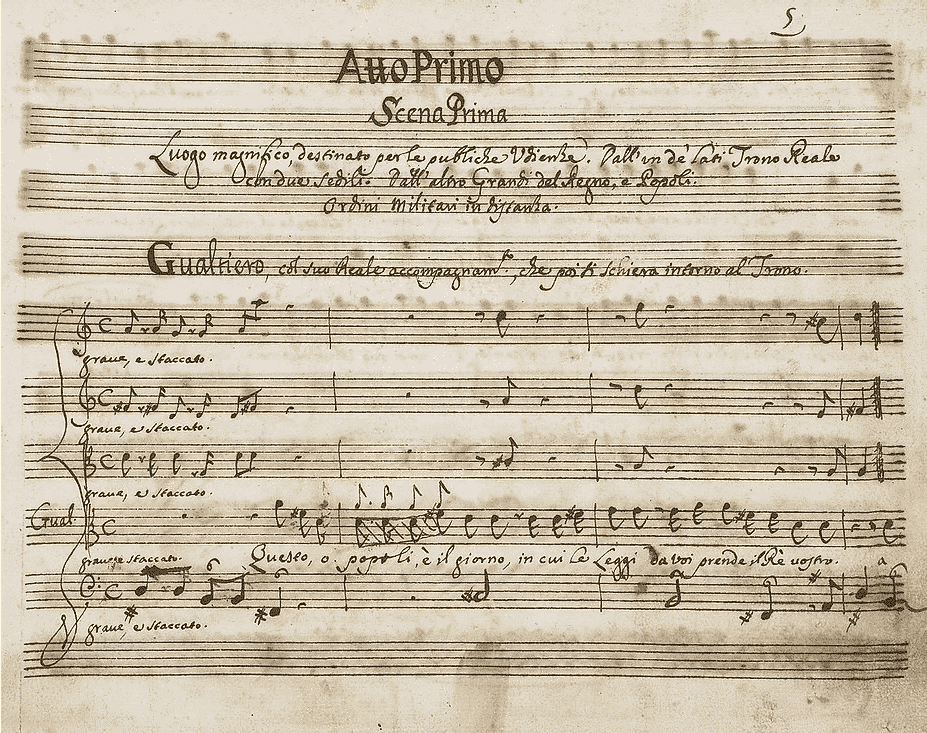 5
Atto Primo
Scena Prima
Luogo magnifico, destinato per le publiche Udienze. Dall'un de' lati Trono Reale
con due sedili. Dall'altro Grandi del Regno, e Popoli.
Ordini Militari in distanza.
Gualtiero, col suo Reale accompagnam.to, che poi ti schiera intorno al Trono.
grave, e staccato.
grave, e staccato.
grave, e staccato.
Gual.
grave, e staccato. Questo, o popoli, è il giorno, in cui le Leggi da voi prende il Rè vostro. a
grave, e staccato.